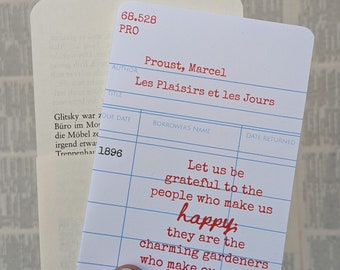 68.528
PRO
Proust, Marcel
AUTHOR
Les Plaisirs et les Jours
TITLE
DUE DATE
BORROWERS NAME
DATE RETURNED
1896
Let us be
grateful to the
people who make us
happy,
they are the
charming gardeners
who make
Glitsky war
Büro im Mo
die Möbel
irgend etwa
Treppenhau